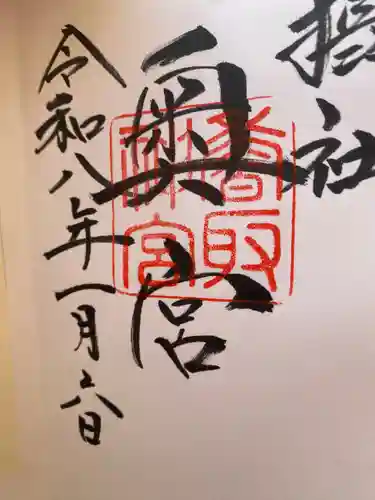 摂社
奥宮
香取
神宮
令和八年一月六日